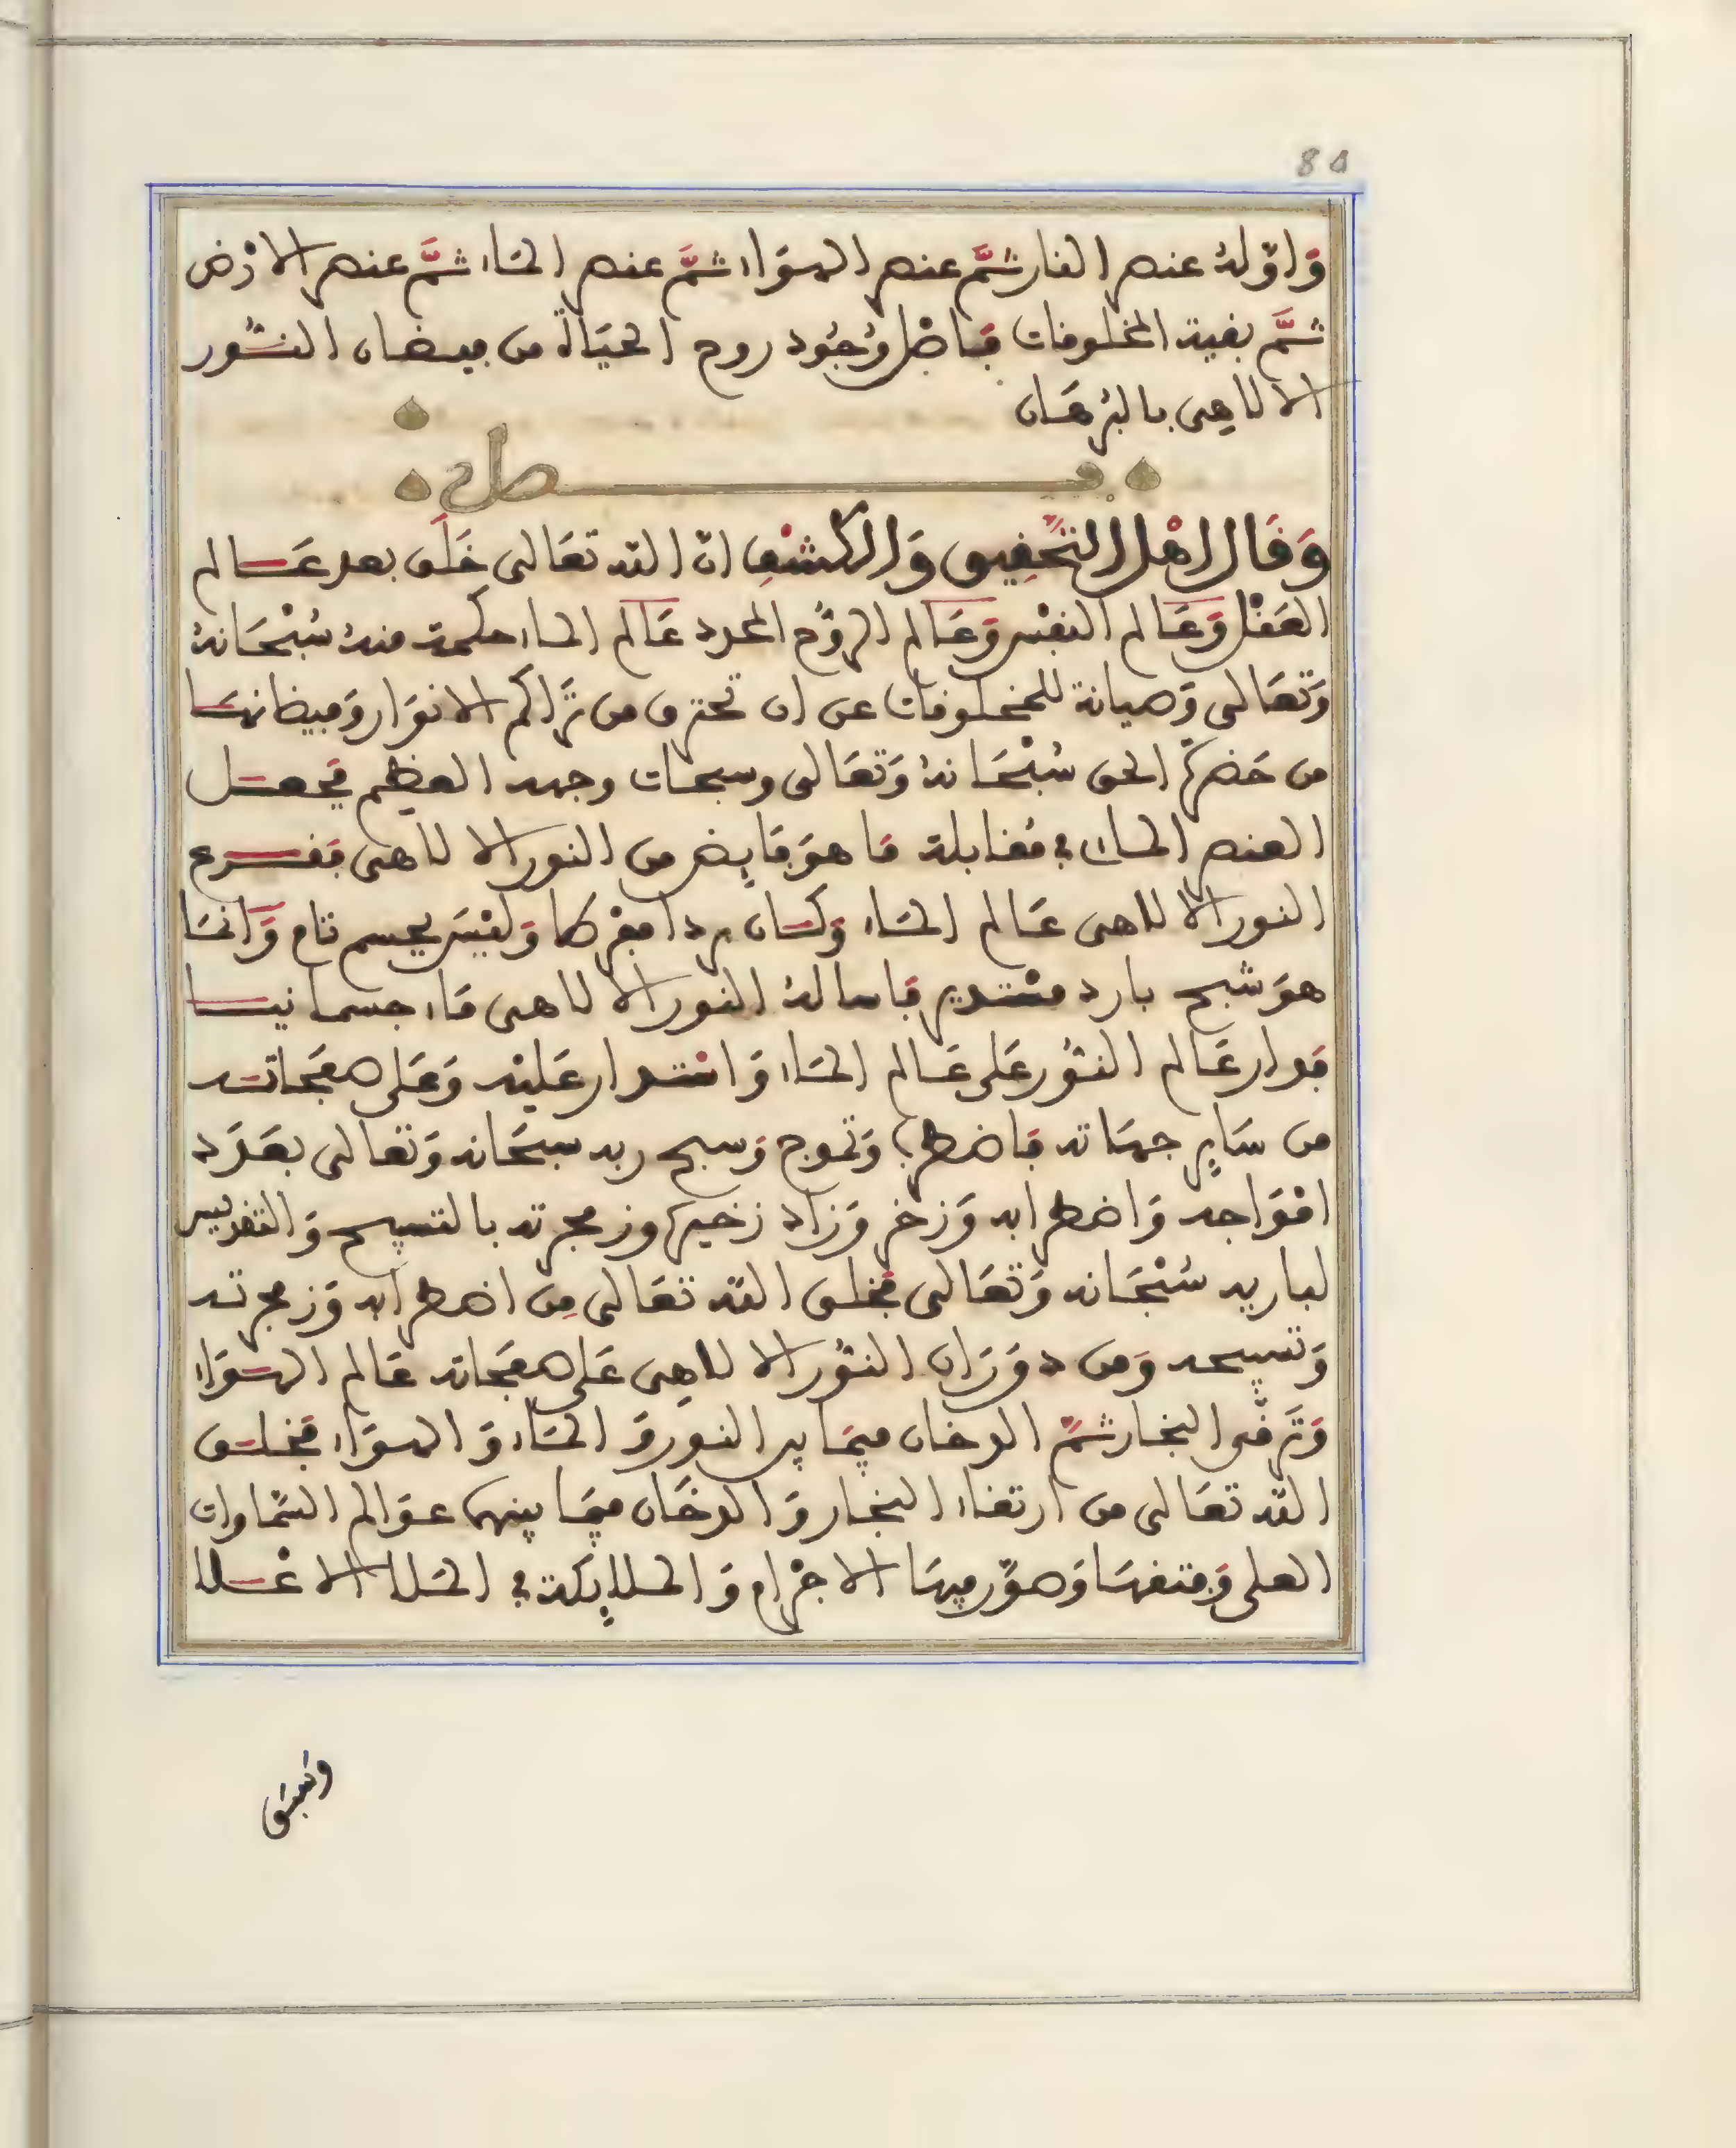 80
وَاوّلهُ عنصر النار ثمَّ عنصر الهوَاء ثمَّ عنصر المَاء ثمَّ عنصر الارْض
ثمَّ بقية المخلوقات فَاصْل وُجُود روح الحيَاة من فيضان النُّور
الالاهِى بالبُرهَان
فصل
وَقَال اهْل التّحْقِيق وَالكشْفِ انّ الله تعَالى خَلَق بعد عَالم
العَقْل وَعَالم النفْس وَعَالم الروُّح المجرد عَالم الماء حكمة منهُ سُبْحَانهُ
وَتعَالى وَصيانة للمخلوقات عن ان تحترق من تَراكم الانوَار وَفيضانهَا
من حَضرة الحق سُبْحَانهُ وَتعَالى وسبحات وجهه العظِيم فجعَل
العنصر المائ في مُقابلة مَا هوَ فَايِض من النور الالاهى فقرع
النور الالاهى عَالم المَاء وَكَان بردا مفْركا وَليْسَ بجسم تام وَانمَا
هوَ شبح بارد مسْتدير فَاسالهُ النور الالاهى مَاء جسمانيا
فدار عَالم النُّور عَلى عَالم المَاء وَاسْتدار عَليْه وَعَلى صفَحَاتِه
من سَايِر جهَاته فَاضطرب وَتموج وَسبح ربه سبحَانه وَتعالى بعَدَد
امْوَاجه وَاضطرابه وَزخر وَزاد زخيره وزمجرته بالتسبيح وَالتقديس
لباريه سُبْحَانه وَتعَالى فخلق الله تعَالى مِن اضطرابه وَزمجرته
وَتسبيحه وَمن دوَرَان النُّور الالاهِى عَلى صفَحَاته عَالم الهوَاء
وَترقّى البخار ثمَّ الدخان فيمَا بين النور وَ المَاء وَ الهوَاء فخلق
الله تعَالى من ارتقاء البخار وَ الدخَان فيمَا بينهما عوَالم السَّماوات
العلى وَفتقهَا وَصوَّر فيهَا الاجْرام وَ الملايِكة في المَلا الاعْلا
وَتبقى